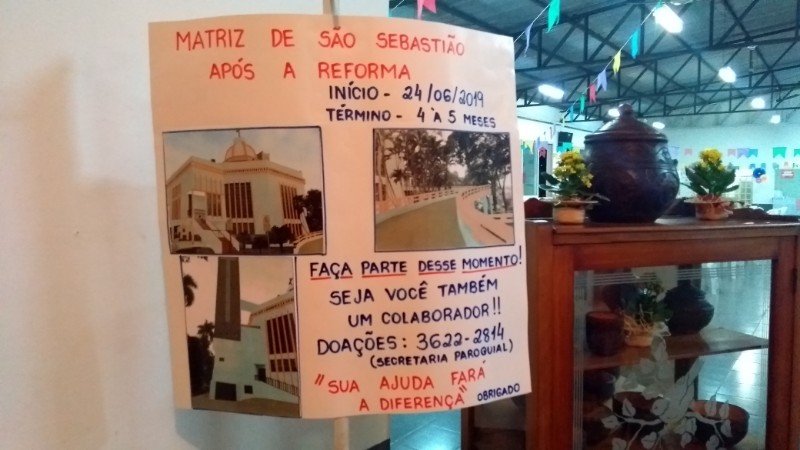 MATRIZ DE SÃO SEBASTIÃO
APÓS A REFORMA
INÍCIO - 24/06/2019
TÉRMINO - 4 À 5 MESES
FAÇA PARTE DESSE MOMENTO!
SEJA VOCÊ TAMBÉM
UM COLABORADOR!!
DOAÇÕES: 3622-2814
(SECRETARIA PAROQUIAL)
"SUA AJUDA FARÁ
A DIFERENÇA" OBRIGADO